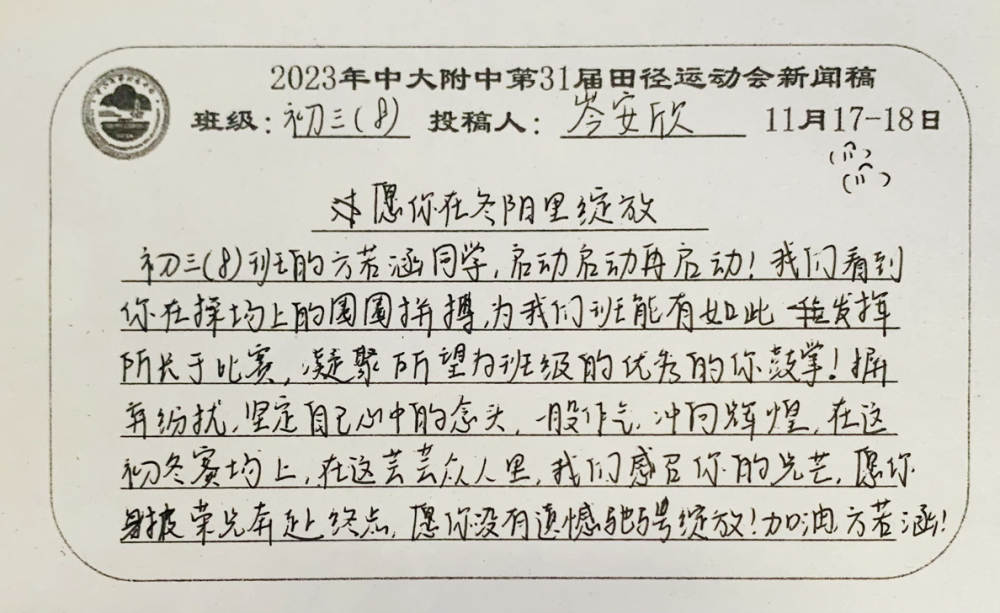 2023年中大附中第31届田径运动会新闻稿
班级:初三(8) 投稿人:岑安欣 11月17-18日
愿你在冬阳里绽放
初三(8)班的方若涵同学,启动启动再启动!我们看到
你在操场上的圈圈拼搏,为我们班能有如此发挥
所长于比赛,凝聚所望为班级的优秀的你鼓掌!摒
弃纷扰,坚定自己心中的念头,一股作气,冲向辉煌,在这
初冬赛场上,在这芸芸众人里,我们感召你的光芒,愿你
身披荣光奔赴终点,愿你没有遗憾地绽放!加油方若涵!